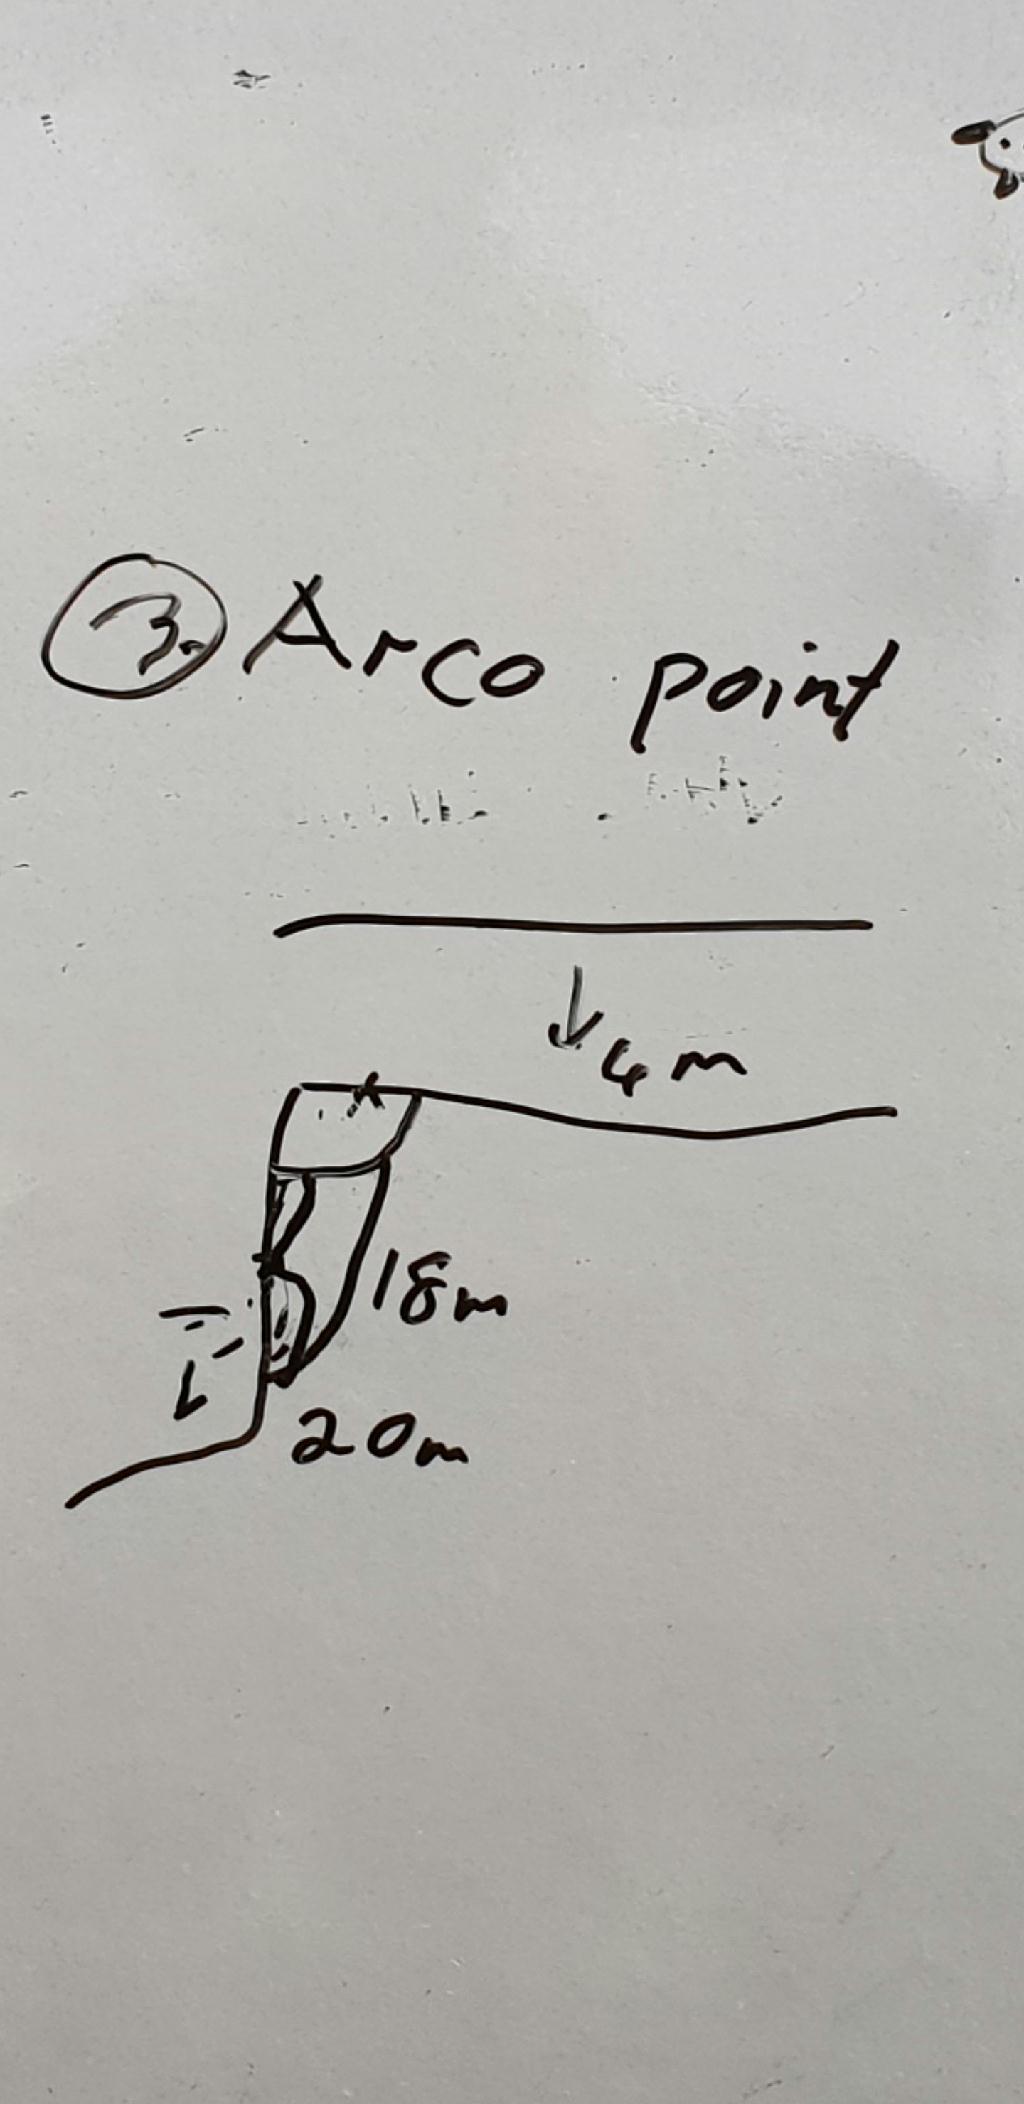 3. Arco point
4m
18m
20m